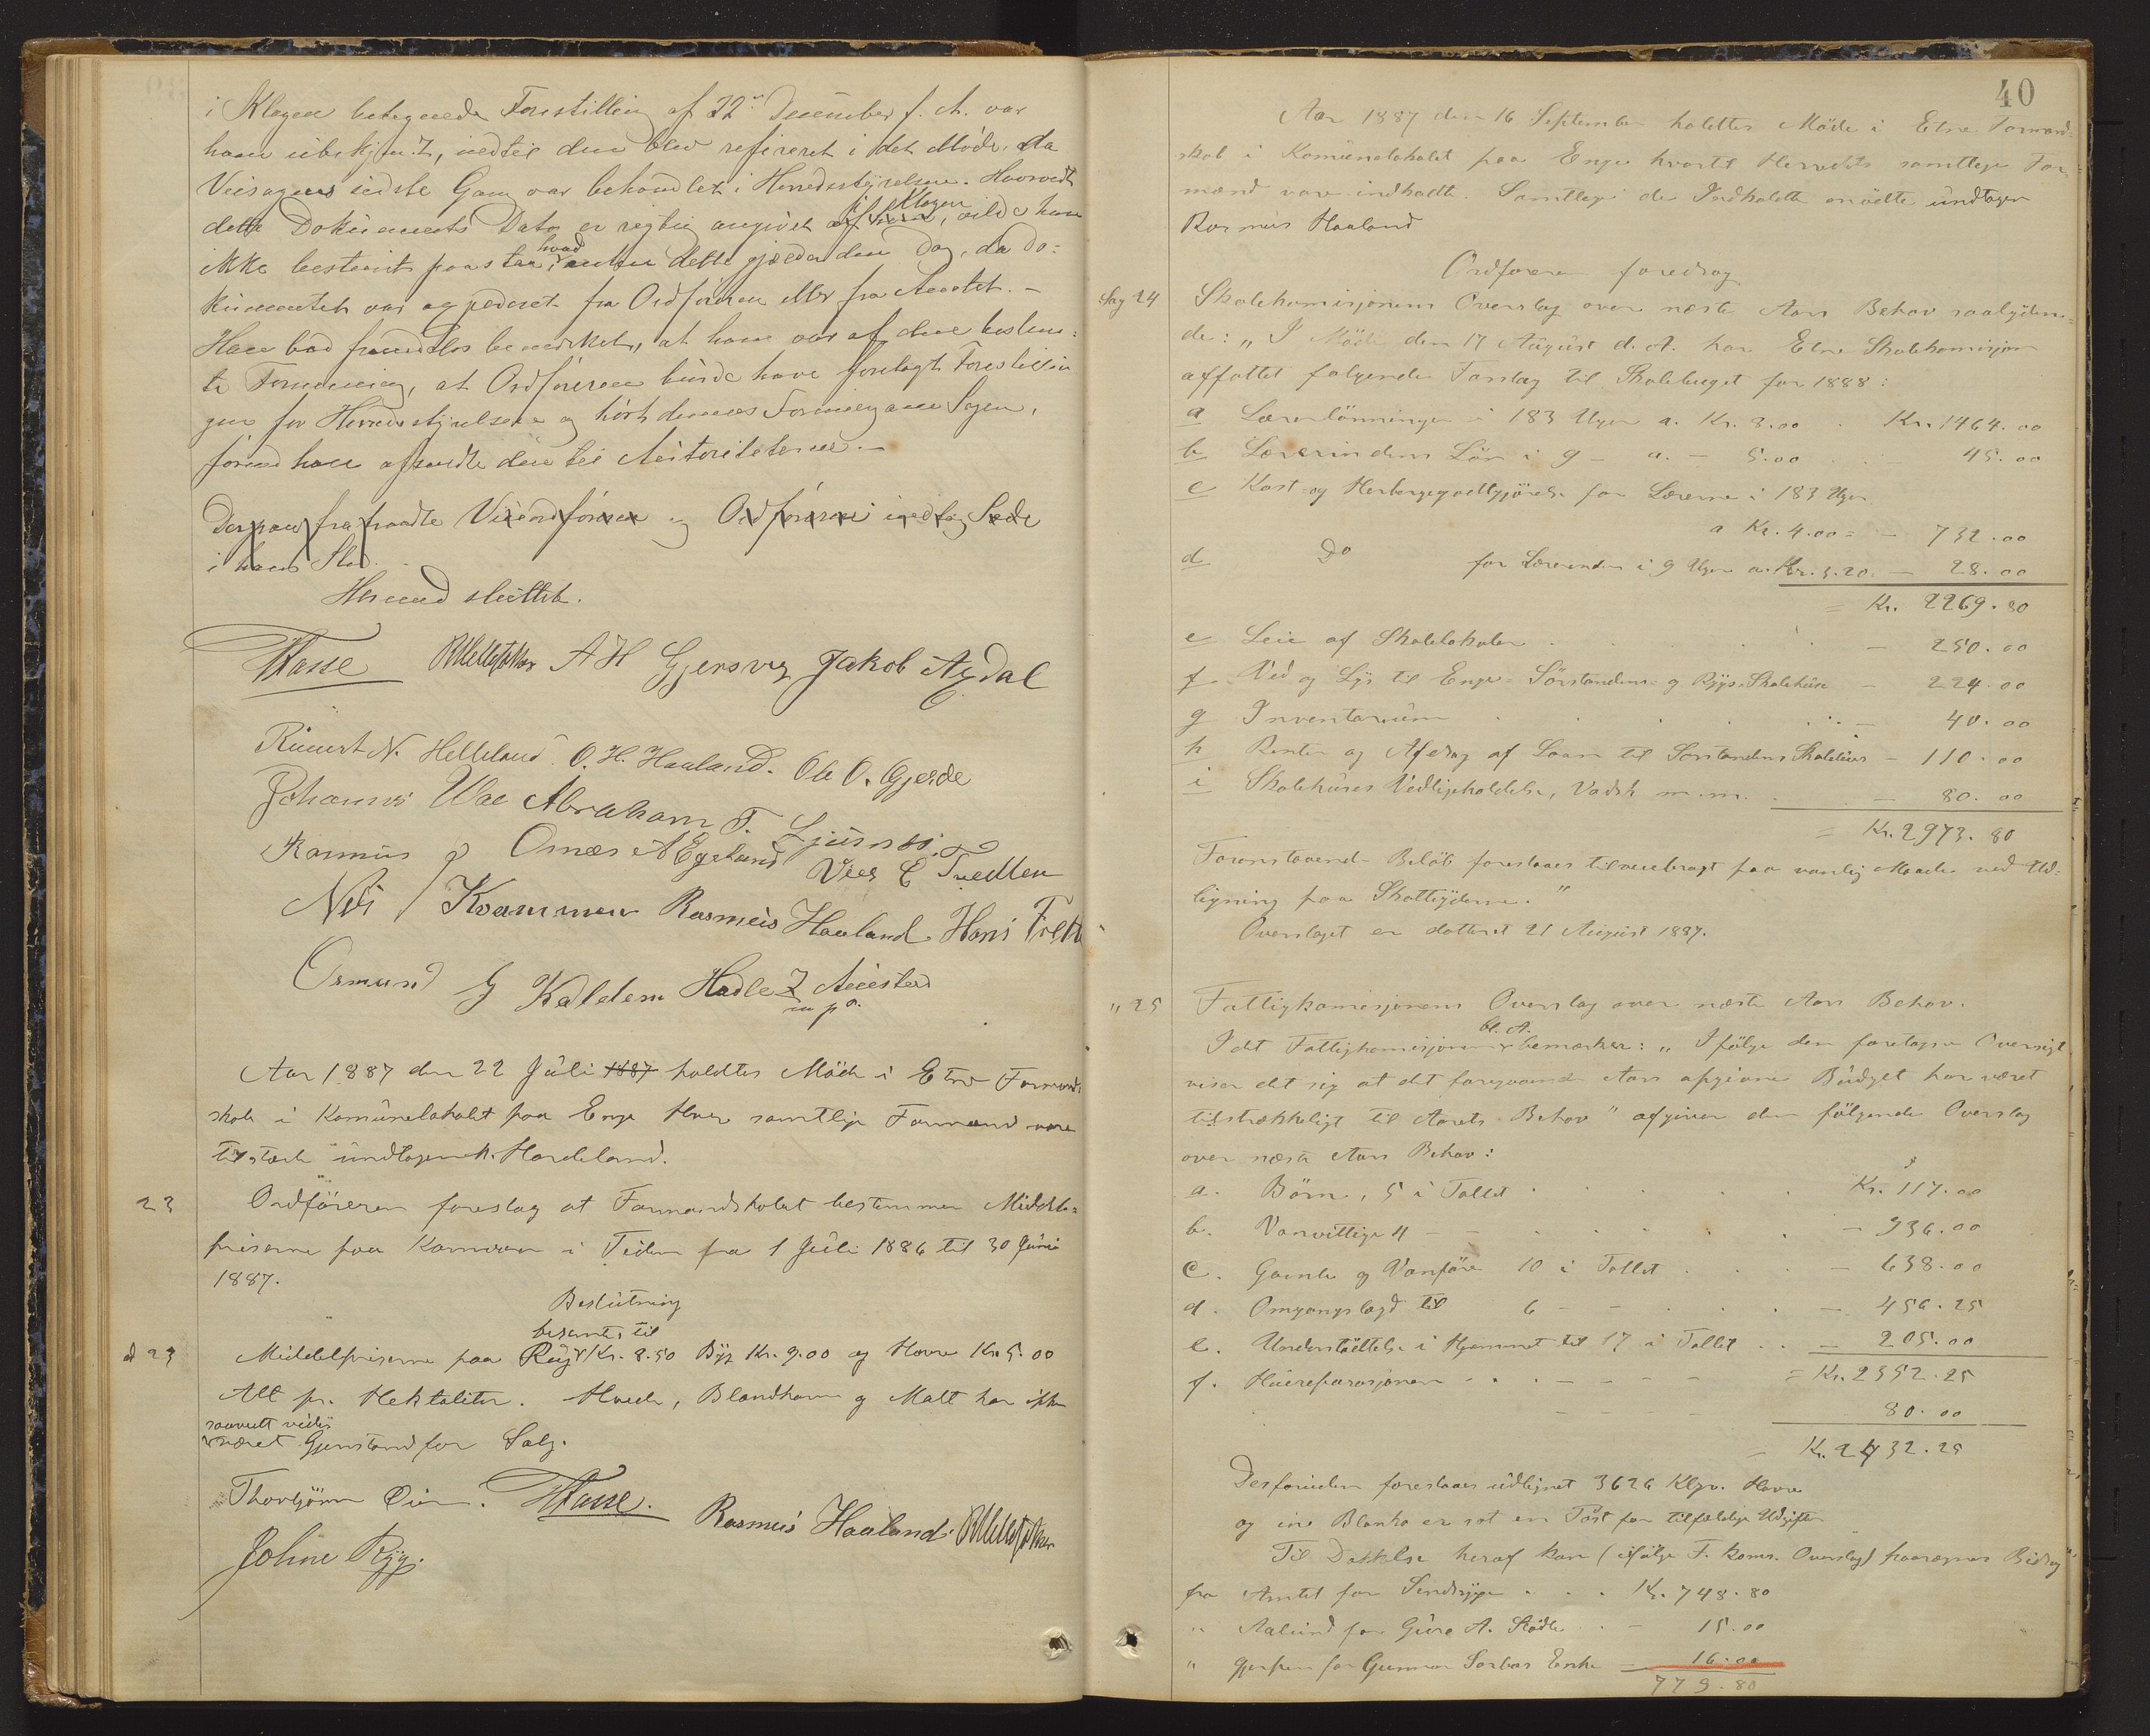 i Klagen betegnede Forestilling af 22de December f. A. var
ham ubekjendt, indtil den blev refereret i det Møde, da
Veisagens sidste Gang var behandlet i Herredsstyrelsen. Hvorvidt
dette Dokuments Dato er rigtig angivet i Klagen, vilde han
ikke bestemt paastaa, hvad enten dette gjælder den Dag, da Do-
kumentet var afsendt fra Ordføreren eller fra Amtet. –
Han bad fremdeles bemærket, at han var af den bestem-
te Formening, at Ordføreren burde have forelagt Forestillin
gen for Herredsstyrelsen og hørt dennes Formening om Sagen,
førend han afsendte den til Autoriteterne. –
Derpaa fratraadte Viceordføreren og Ordføreren indtog Sæde
i hans Sted.
Hermed sluttet.
THasse A H Gjersvig Jakob Agdal
Rimert N. Helleland. O. H. Haaland. Ole O. Gjerde
Johannes Wae Abraham T. Ljusnes
Rasmus Omæs A Egeland Vier E Tvedten
Nils Kvammen Rasmus Haaland Hans
Osmund G Kaldem Hadle Auestad
m p.
Aar 1887 den 22 Juli 1887 holdtes Møde i Etne Formand-
skab i Komunelokalet paa Enge. Hvor samtlige Formænd vare
tilstæde undtagen K. Hardeland.
23 Ordføreren foreslog at Formandskabet bestemmer Middel-
priserne paa Kornvarer i Tiden fra 1 Juli 1886 til 30 Juni
1887.
Beslutning
bestemtes til
d 23 Middelpriserne paa Rug Kr. 8.50 Byg Kr. 9.00 og Havre Kr. 5.00
Alt pr. Hektoliter. Hvede, Blandkorn og Malt har ikke
saavidt vides
været Gjenstand for Salg.
Thorbjørn Øien. THasse. Rasmus Haaland.
Johne Rygg.
40
Aar 1887 den 16 September holdtes Møde i Etne Formand-
skab i Komunelokalet paa Enge hvortil Herredets samtlige For-
mænd vare indkaldte. Samtlige de Indkaldte mødte undtagen
Rasmus Haaland
Ordføreren foredrog
Sag 24 Skolekomisjonens Overslag over næste Aars Behov saalyden-
de: „I Møde den 17 August d. A. har Etne Skolekomisjon
affattet følgende Forslag til Skolebuget for 1888:
a Lærerlønninger i 183 Uger a. Kr. 8.00 . Kr. 1464.00
b Lærerindens Løn i 9 – a. – 5.00 . . – 45.00
c Kost- og Herbergegodtgjørelse for Lærerne i 183 Uger
a Kr. 4.00 = – 732.00
d Do for Lærerinden i 9 Uger a. Kr. 3.20. – 28.00
= Kr. 2269.80
e Leie af Skolelokaler . . . . – 250.00
f. Ved og Lys til Enge- Sørstandens- og Rygs Skolehuse – 224.00
g Inventarium . . . . – 40.00
h Renter og Afdrag af Laan til Sørstandens Skolehus – 110.00
i Skolehuses Vedligeholdelse, Vadsk m.m. . – 80.00
= Kr. 2973.80
Foranstaaende Beløb foreslaaes tilveiebragt paa vanlig Maade ved Ud-
ligning paa Skatteyderne."
Overslaget er datteret 21 August 1887.
„ 25 Fattigkomisjonens Overslag over næste Aars Behov.
Idet Fattigkomisjonen bl. A. bemærker: „Ifølge den foretagne Oversigt
viser det sig at det foregaaende Aars afgivne Budget har været
tilstrækkeligt til Aarets Behov" afgiver den følgende Overslag
over næste Aars Behov:
a. Børn, 5 i Tallet . . . . Kr. 117.00
b. Vanvittige 4 – – . . . . – 936.00
c. Gamle og Vanføre 10 i Tallet . . . – 638.00
d. Omgangslægd til 6 – – . . . – 456.25
e. Understøttelse i Hjemmet til 17 i Tallet . . – 205.00
= Kr. 2352.25
f. Husreparasjoner . . . – – – –
80.00
= Kr. 2432.25
Desforuden foreslaaes udlignet 3626 Klgr. Havre
og in Blanko er sat en Post for tilfældige Udgifter
Til Dækkelse heraf kan (ifølge F. koms. Overslag) paaregnes Bidrag
fra Amtet for Sindsyge . . . Kr. 748.80
„ Aalund for Guro A. Stødle . . – 15.00
„ Gjerpen for Gunnar Sørbøs Enke – 16.00
779.80